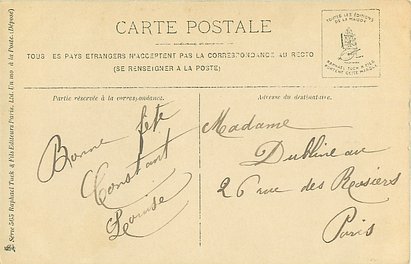 CARTE POSTALE
TOUS LES PAYS ETRANGERS N'ACCEPTENT PAS LA CORRESPONDANCE AU RECTO
(SE RENSEIGNER A LA POSTE)
TOUTES LES EDITIONS
DE LA MAISON
RAPHAEL TUCK & FILS
PORTENT CETTE MARQUE
Partie réservée à la correspondance.
Adresse du destinataire.
Bonne fête
Constant
Louise
Madame
Dublineau
26 rue des Rosiers
Paris
Série 505 Raphael Tuck & Fils Editeurs Paris, Ltd Un mo à la Poste. (Déposé)